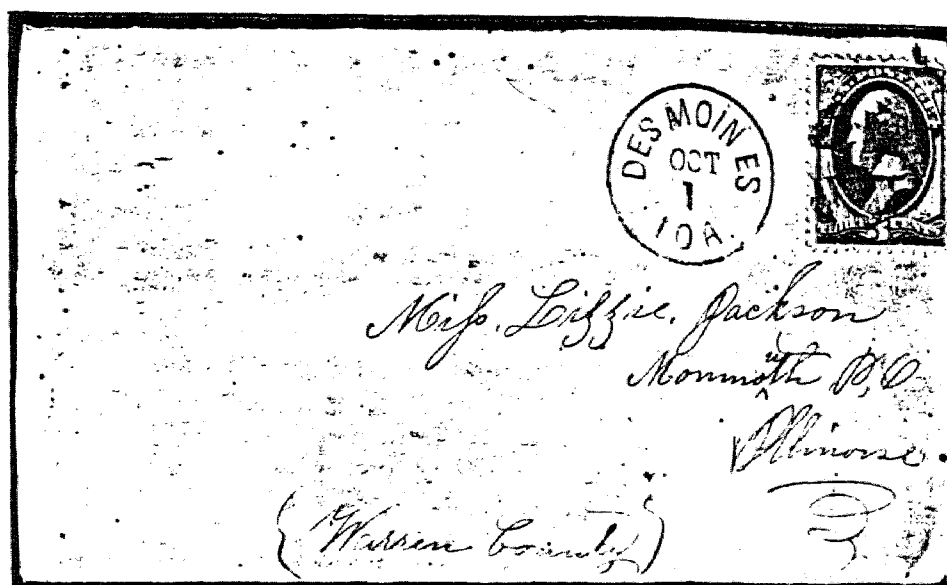 DES MOINES
OCT
1
IOA.
3
Miss. Lizzie. Jackson
Monmouth P.O
Illinoise.
{Warren County}